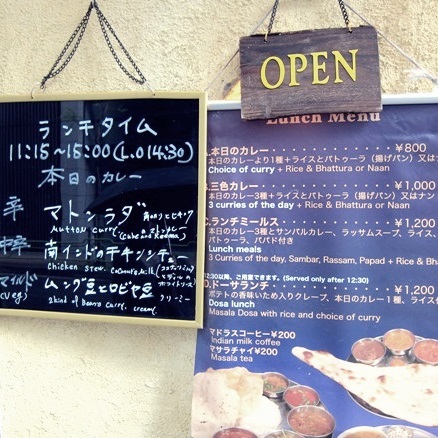 ランチタイム
11:15~15:00(L.O14:30)
本日のカレー
辛 マトンラダ
Mutton curry
中辛 南インドのチキンシチュー
Chicken stew.
マイルド ムング豆とロビヤ豆
2kind of beans curry. creamy.
OPEN
Lunch Menu
A.本日のカレー ¥800
本日のカレーより1種+ライスとバトゥーラ(揚げパン)又はナン
Choice of curry + Rice & Bhattura or Naan
B.三色カレー ¥1,000
本日のカレー3種+ライスとバトゥーラ(揚げパン)又はナン
3 curries of the day + Rice & Bhattura or Naan
C.ランチミールス ¥1,200
本日のカレー3種とサンバルカレー、ラッサムスープ、ライス、
バトゥーラ、パパド付き
Lunch meals
3 Curries of the day, Sambar, Rassam, Papad + Rice & Bh
12:30以降、ご用意できます。(Served only after 12:30)
D.ドーサランチ ¥1,200
ポテトの香味いため入りクレープ、本日のカレー1種、ライス
Dosa lunch
Masala Dosa with rice and choice of curry
マドラスコーヒー¥200
Indian milk coffee
マサラチャイ¥200
Masala tea